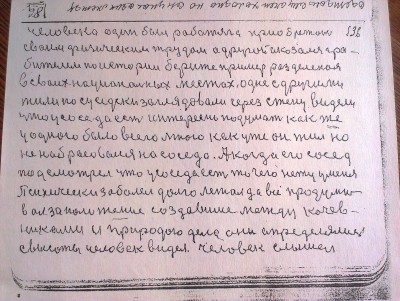 человека один были работяги приобретают
своим физическим трудом а другой оказался гра-
бителем по истории берите пример разделения
в своих национальных местах, одне с другими
жили по соседски заглядовали через стену видели
что у соседа есть интересно подумать как же
у одного было всего много как уже он жил но
не набрасовался на соседа. А когда его сосед
подсмотрел что у соседа есть то чего нет у меня
Психически заболел долго летал да всё продумы-
вал заполнение создавшие между кочев-
никами и природою дела они определялись
с высоты человек видел человек слышал